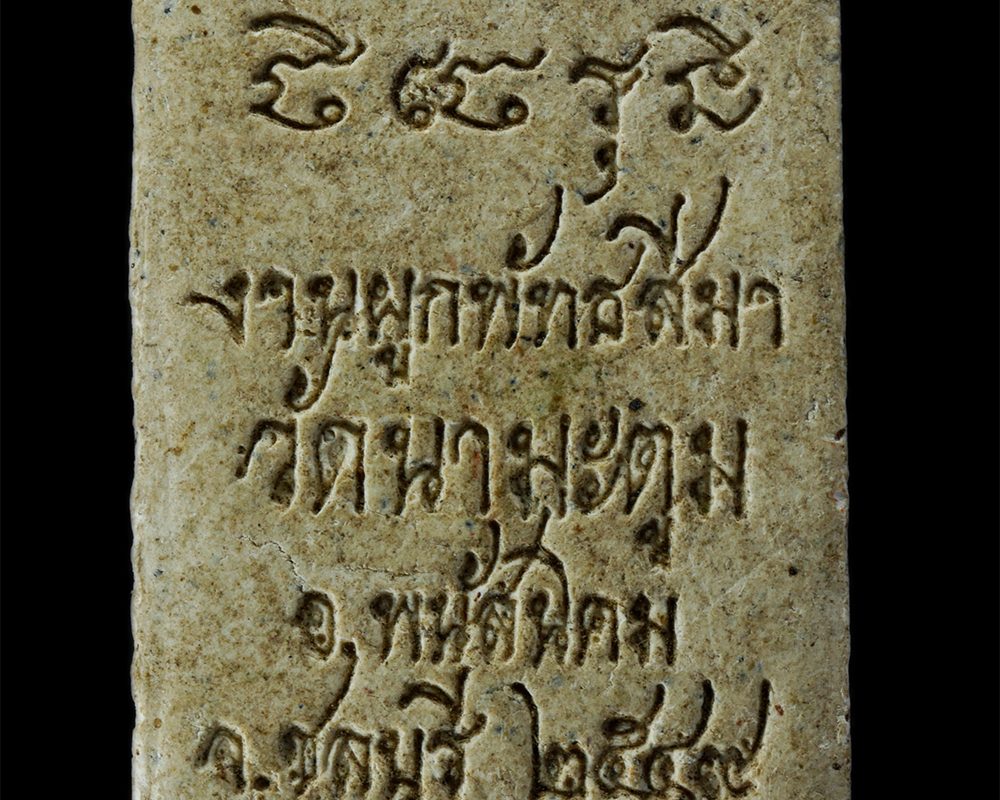 งานผูกพัทธสีมา
วัดนามะตูม
อ.พนัสนิคม
จ.ชลบุรี ๒๕๔๙